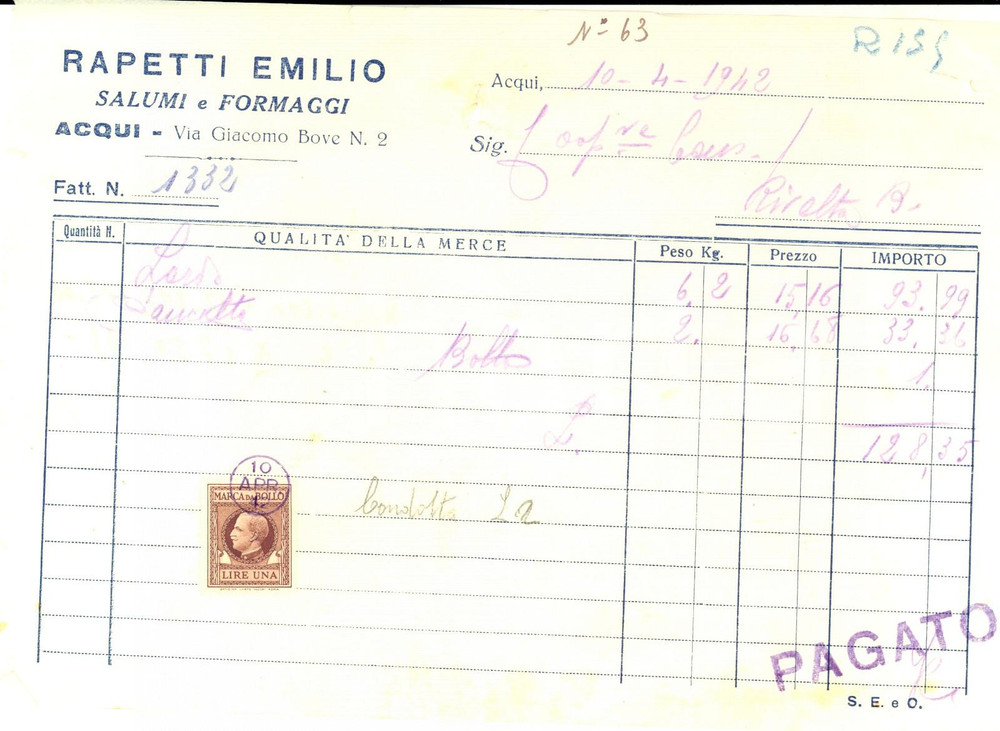 Nº 63
R 155
RAPETTI EMILIO
SALUMI e FORMAGGI
ACQUI - Via Giacomo Bove N. 2
Acqui, 10-4-1942
Sig. Coop.va Cons.
Rivalta B.
Fatt. N. 1332
Quantità N. QUALITA' DELLA MERCE Peso Kg. Prezzo IMPORTO
Lardo 6. 2 15,16 93.99
2. 16,68 33,36
Bollo 1.
L. 128,35
10
APR
MARCA DA BOLLO
LIRE UNA
Condotta L 2
PAGATO
S. E. e O.